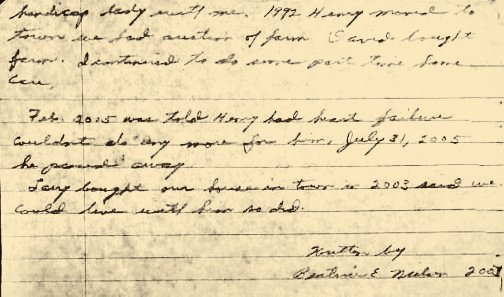 handicap lady with me. 1992 Henry moved to
town we had auction of farm David bought
farm. I continued to do some part time home
care,
Feb. 2005 was told Henry had heart failure
couldn't do any more for him, July 31, 2005
he passed away
Larry bought our house in town in 2003 said we
could live with him so did.
Written by
Beatrice E. Nelson